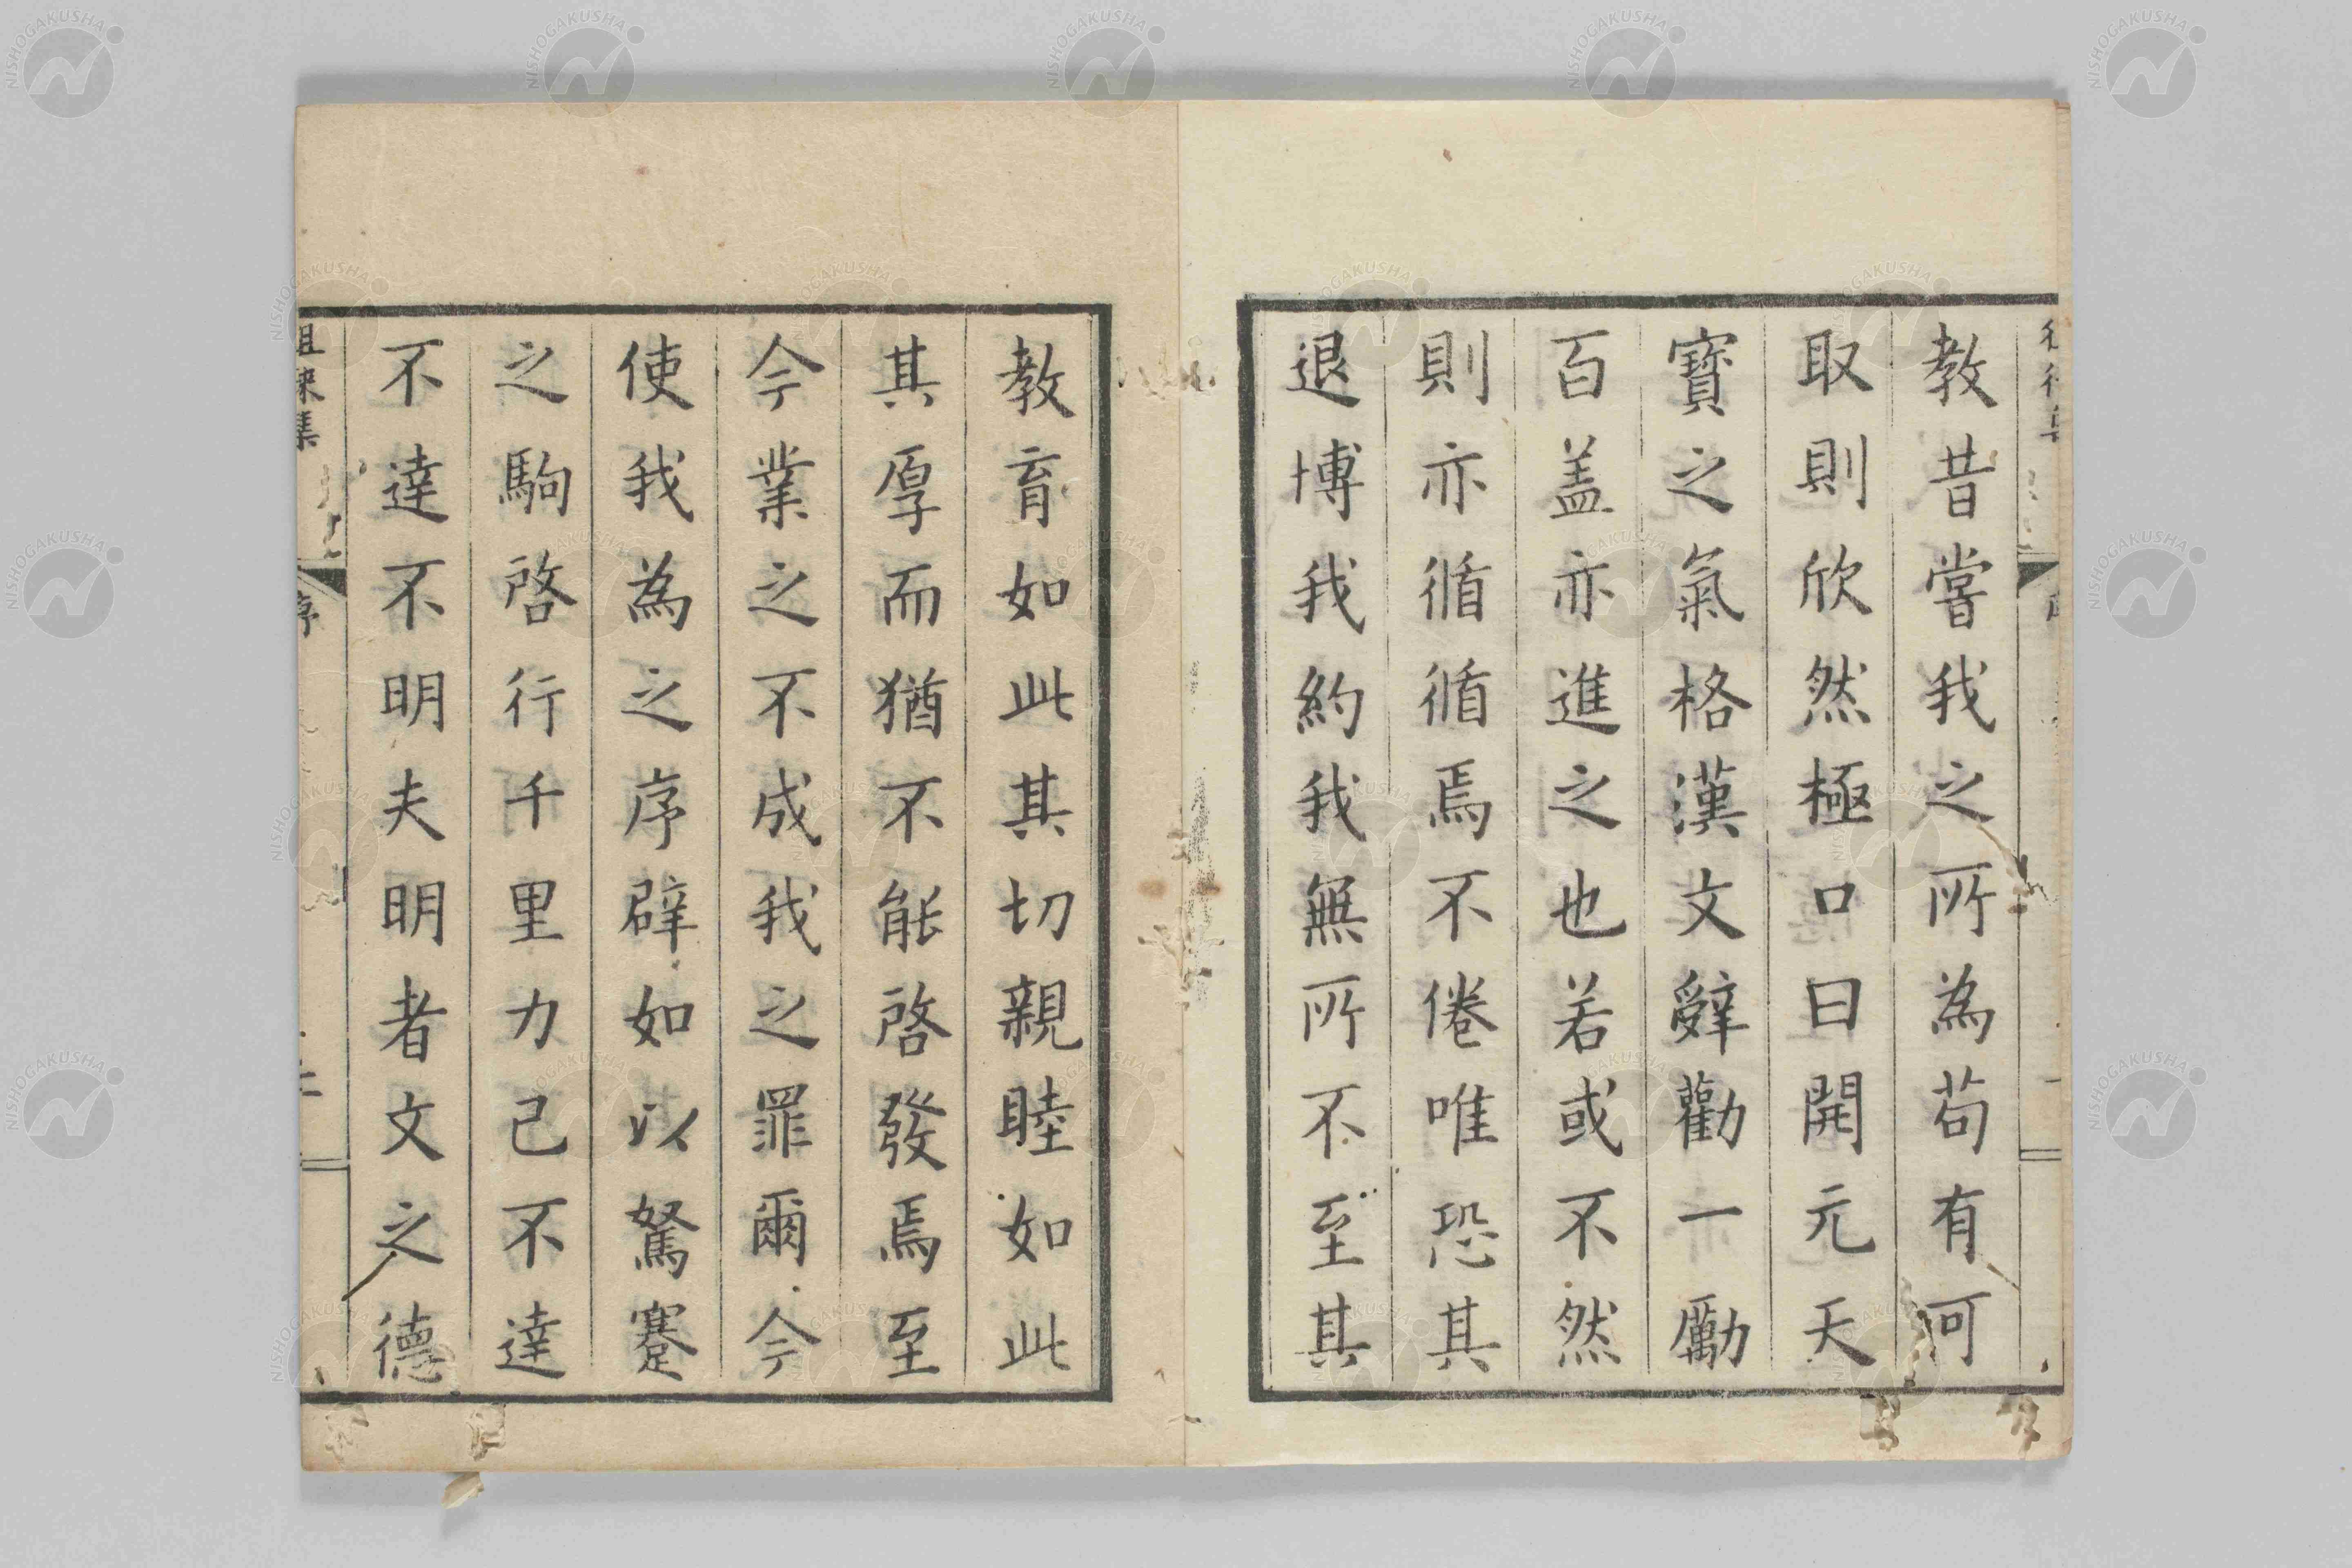 教昔嘗我之所為苟有可
取則欣然極口曰開元天
寶之氣格漢文辭勸一勵
百盖亦進之也若或不然
則亦循循焉不倦唯恐其
退博我約我無所不至其
教育如此其切親睦如此
其厚而猶不能啓發焉至
今業之不成我之罪爾今
使我為之序辟如以駑蹇
之駒啓行千里力已不達
不達不明夫明者文之德
徂徠集
序
二
NISHOGAKUSHA